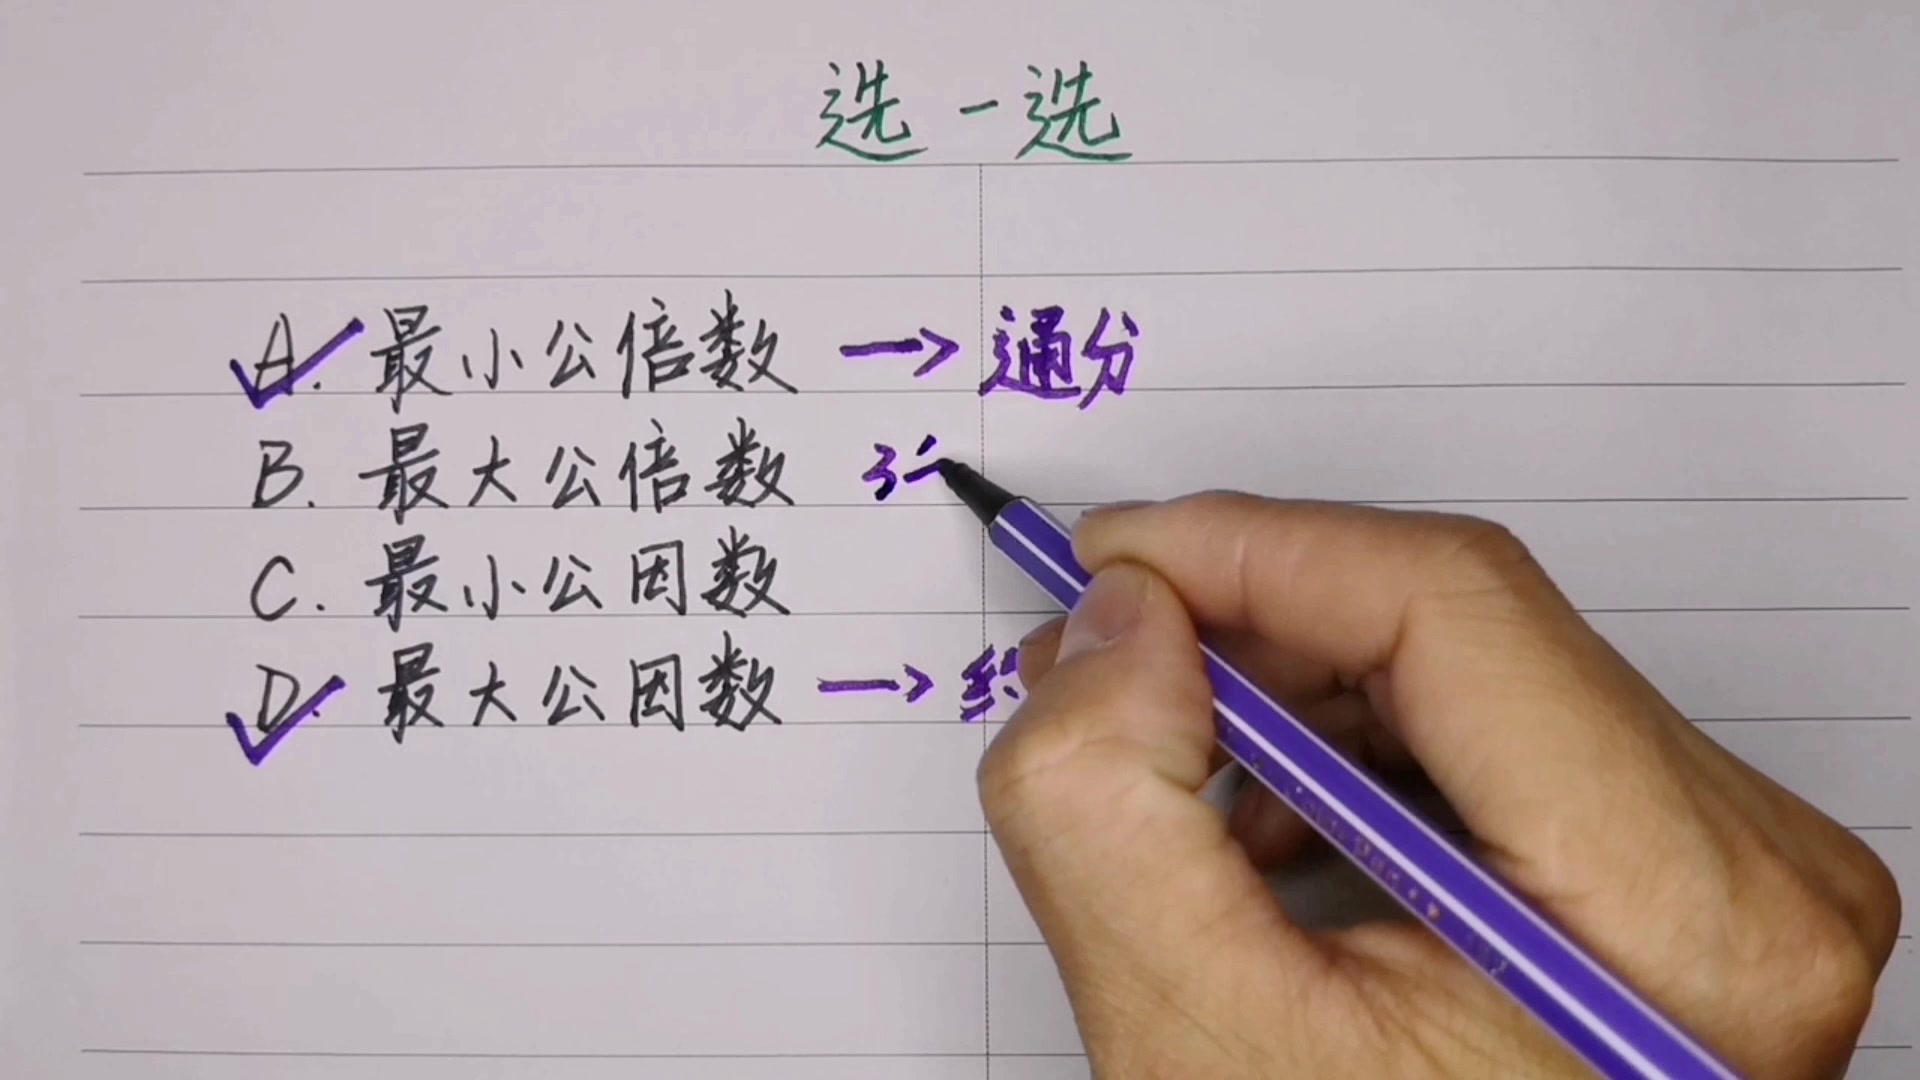 选一选
A. 最小公倍数 → 通分
B. 最大公倍数 3
C. 最小公因数
D. 最大公因数 →